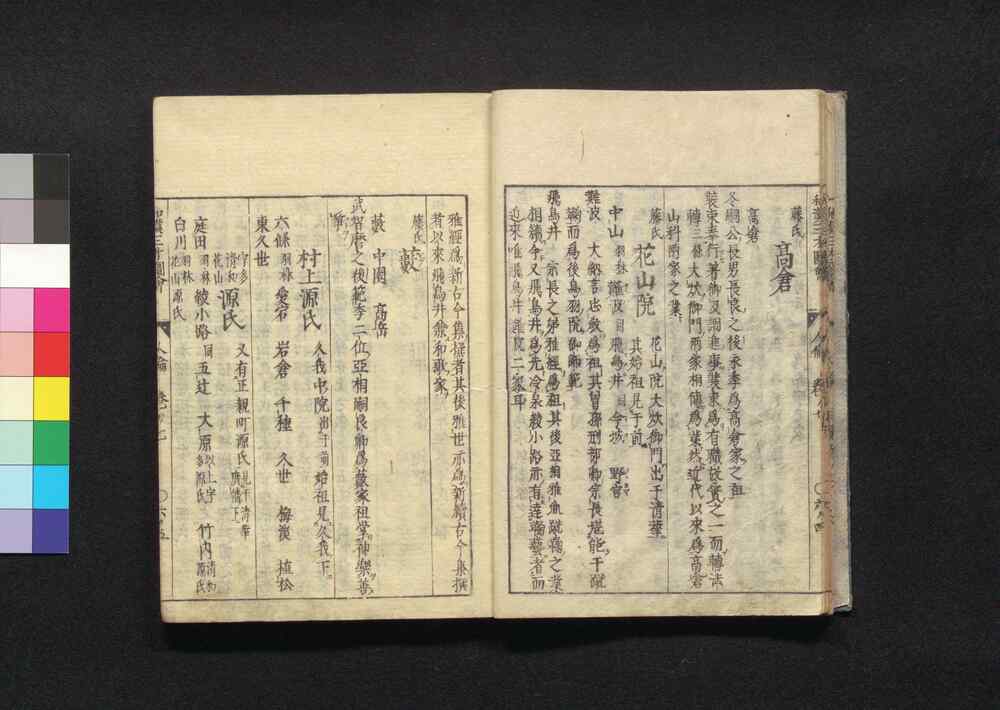 藤氏
高倉
高倉
冬嗣公長男長良之後永季為高倉家之祖
装束奉行著御及調進事装束為有職故實之一而轉法
轉三條大炊御門兩家相傳為業然近代以來為高倉
山科兩家之業
藤氏
花山院
花山院大炊御門出于清華
其始祖見于前
中山 羽林 難波 同 飛鳥井 同 今城 野宮
難波 大納言忠教為祖其曾孫刑部卿宗長堪能于蹴
鞠而為後鳥羽院御師範
飛鳥井 宗長之弟雅經為祖其後亞相雅 蹴鞠之業
相續今又飛鳥井為先冷泉綾小路亦有達鞠藝者而
近來唯飛鳥井難波二家耳
雅經為新古今集撰者其後雅世亦為新續古今集撰
者以來飛鳥井兼和歌家
藤氏
藪
藪 中園 高岳
武智麿之後範季二位亞相嗣良卿為藪家祖堂神樂善
箏
村上源氏
久我中院出于前始祖見久我下
六條 羽林 愛宕 岩倉 千種 久世 梅溪 植松
東久世
宇多 清和 花山
源氏
又有正親町源氏見于清華廣幡下
庭田 羽林 綾小路 同 五辻 大原 以上宇多源氏 竹内 清和源氏
白川 花山源氏
和漢三才圖會 人倫 卷ノ七 ○六ノ五